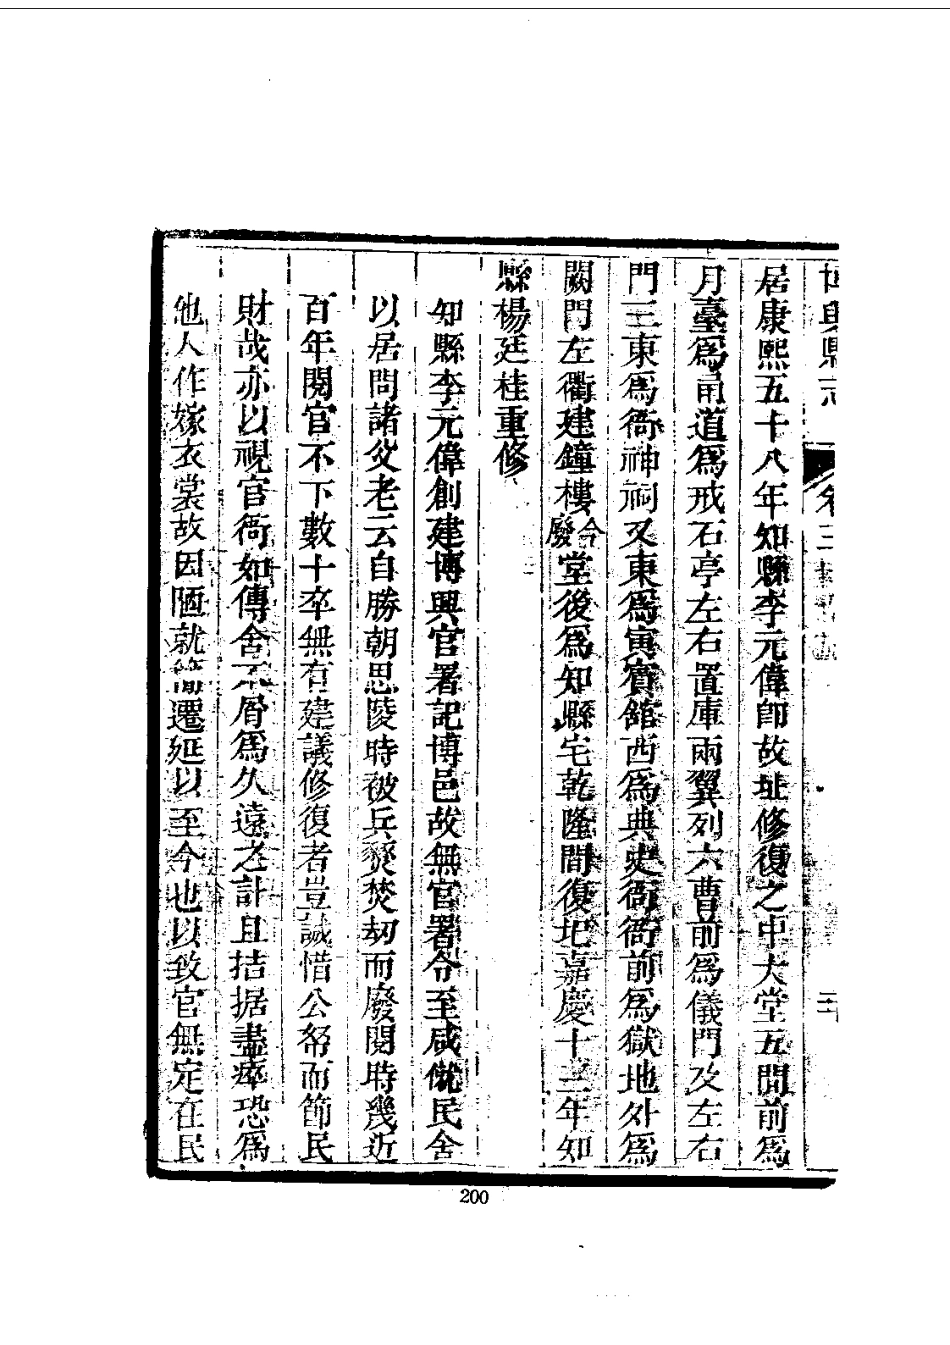 博興縣志 卷三
居康熙五十八年知縣李元偉卽故址修復之中大堂五間前爲
月臺爲甬道爲戒石亭左右置庫兩翼列六曹前爲儀門及左右
門三東爲衙神祠又東爲寅賓館西爲典史衙衙前爲獄地外爲
闕門左衢建鐘樓今廢堂後爲知縣宅乾隆間復圮嘉慶十三年知
縣楊廷桂重修
知縣李元偉創建博興官署記博邑故無官署令至咸僦民舍
以居問諸父老云自勝朝思陵時被兵燹焚刧而廢閱時幾近
百年閱官不下數十卒無有建議修復者豈誠惜公帑而節民
財哉亦以視官衙如傳舍不屑爲久遠之計且拮据盡瘁恐爲
他人作嫁衣裳故因陋就簡遷延以至今也以致官無定在民
200